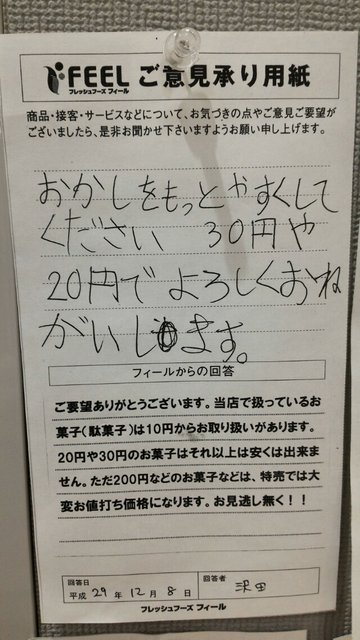 FEEL ご意見承り用紙
フレッシュフーズ フィール
商品・接客・サービスなどについて、お気づきの点やご意見ご要望が
ございましたら、是非お聞かせ下さいますようお願い申し上げます。
おかしをもっとやすくして
ください 30円や
20円でよろしくおね
がいします。
フィールからの回答
ご要望ありがとうございます。当店で扱っているお
菓子(駄菓子)は10円からお取り扱いがあります。
20円や30円のお菓子はそれ以上は安くは出来ま
せん。ただ200円などのお菓子などは、特売では大
変お値打ち価格になります。お見逃し無く!!
回答日 平成 29 年 12 月 8 日 回答者 沢田
フレッシュフーズ フィール